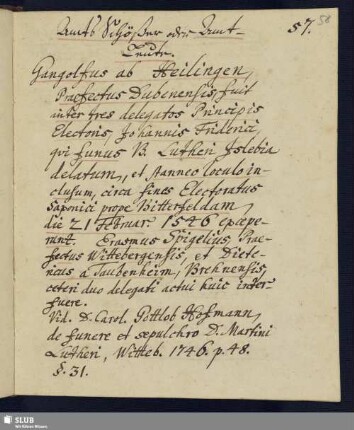 Ambts Schößer oder Amt-
57. 58
Leute.
Gangolfus ab Heilingen,
Praefectus Dubenensis fuit
inter tres delegatos Principis
Electoris, Johannis Friderici,
qvi funus B. Lutheri Islebia
delatum, et stanneo loculo in-
clusum, circa fines Electoratus
Saxonici prope Bitterfeldam,
die 21 Februar. 1546 excepe-
runt. Erasmus Spigelius, Prae-
fectus Wittebergensis, et Diete-
ricus a Taubenheim, Brehnensis,
ceteri duo delegati actui huic inter-
fuere.
Vid. D. Carol. Gottlob Hofmann,
de funere et sepulchro D. Martini
Lutheri, Witteb. 1746. p. 48.
§. 31.
SLUB
Wir führen Wissen.